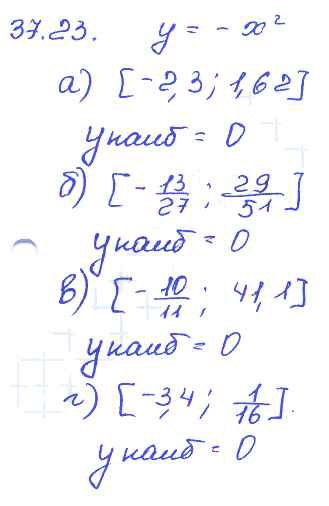 37.23. y = - x²
а) [-2,3; 1,62]
yнаиб = 0
б) [-13/27; 29/51]
yнаиб = 0
в) [-10/11; 41,1]
yнаиб = 0
г) [-3,4; 1/16].
yнаиб = 0